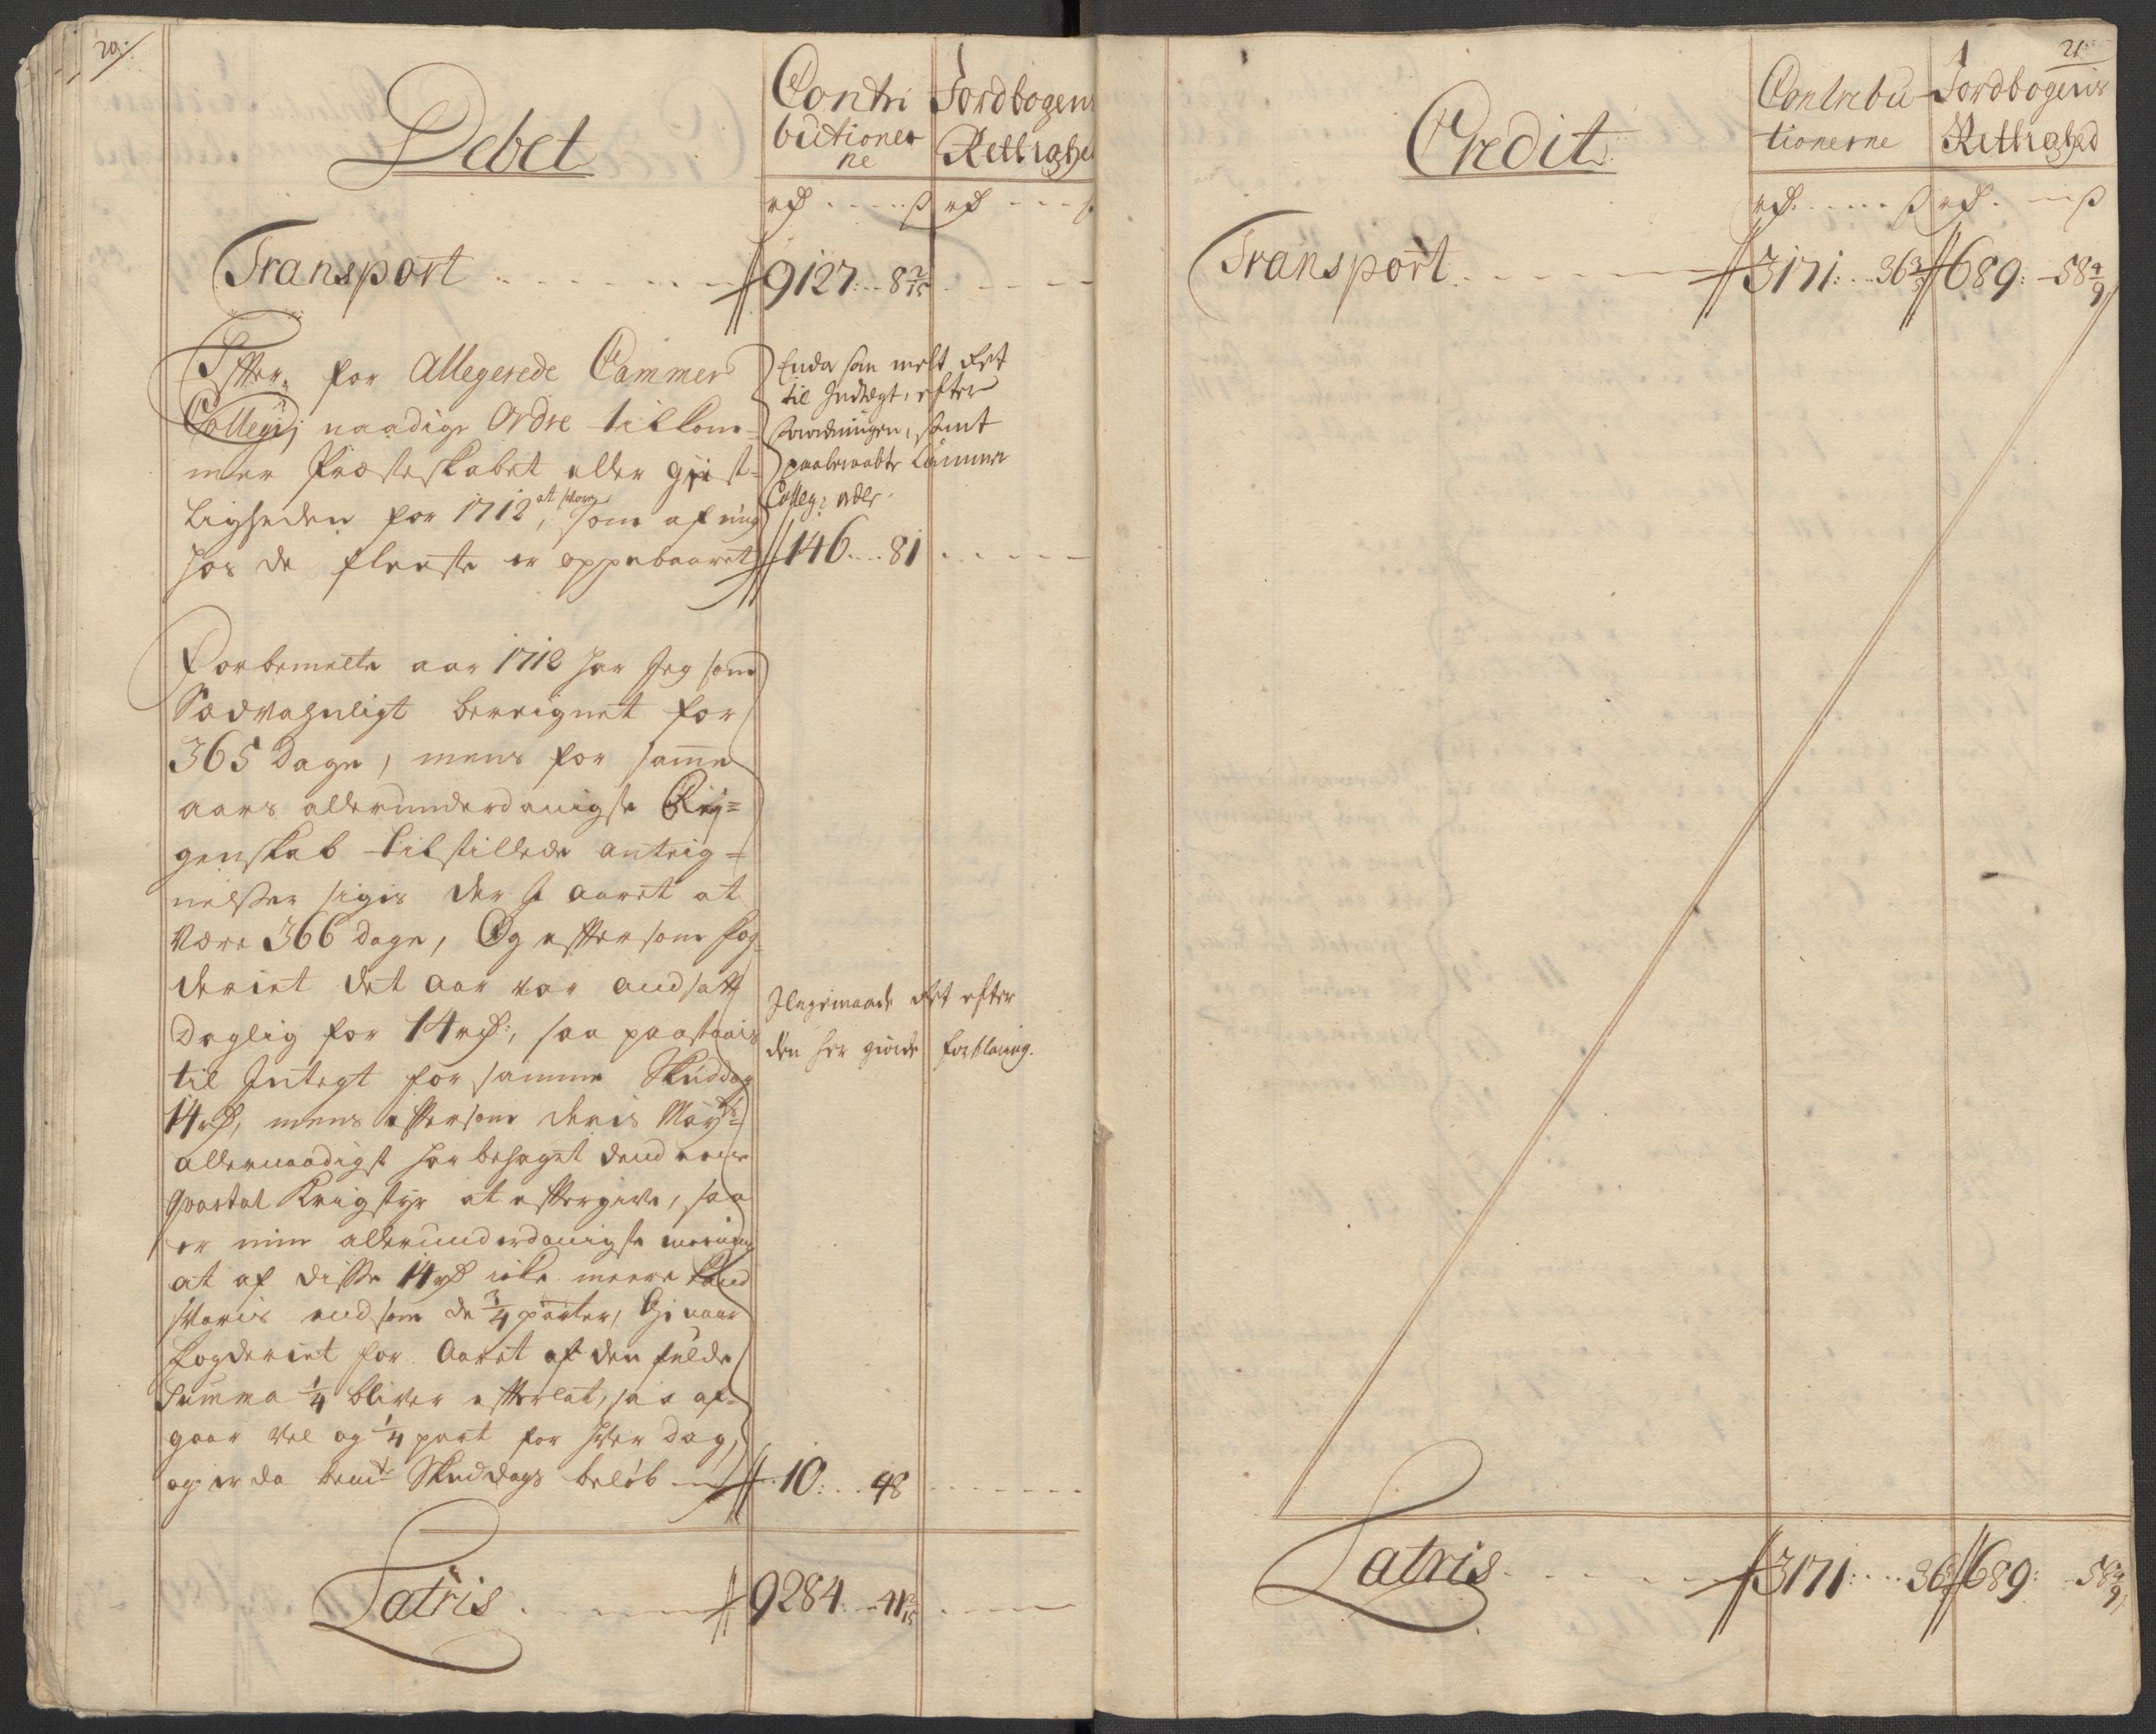 20:
Debet
Contri
butioner
ne
Jordbogens
Rettighed
rd ß rd ß
Transport 9127: 8 2/15
Efter, for Allegerede Cammer
Collegij naadige Ordre tilkom-
mer Præsteskabet eller geist-
ligheden for 1712, at svare som af mig
hos de fleeste er oppebaaret 146 81
Enda som melt Ret
til Indtægt, efter
forordningen, samt
paaberaabte Cammer
Colleg: ordr
Forbemelte aar 1712 har Jeg som
Sædvahnligt bereignet for
365 Dage, mens for samme
aars allerunderdanigste Reg=
genskab tilstillede anteig=
nelsser sigis der I aaret at
være 366 dage, Og eftersom fog-
deriet det aar var ansatt
Daglig for 14 rd:, saa paastaais
til Indtegt for samme Skuddag
14 rd, mens eftersom deris Mayts
allernaadigst har behaget dend eene
Qvartal Krigstyr at eftergive, saa
er min allerunderdanigste meening
at af disse 14 rd icke meere kand
svaris end som de 3/4 parter, thi naar
Fogderiet for Aaret af den fulde
Summa 1/4 bliver efterlat, saa af-
gaar vel og 1/4 part for hver dag,
og er da bemte Skuddags beløb 10: 48
Ligemaade Ret efter
den her giorde forklaring.
Latris 9284: 41 2/15
21:
Credit
Contribu
tionerne
Jordbogens
Rettighed
rd ß rd ß
Transport 3171: 36 3/5 689: 58 4/9
Latris 3171: 36 689: 58 4/9